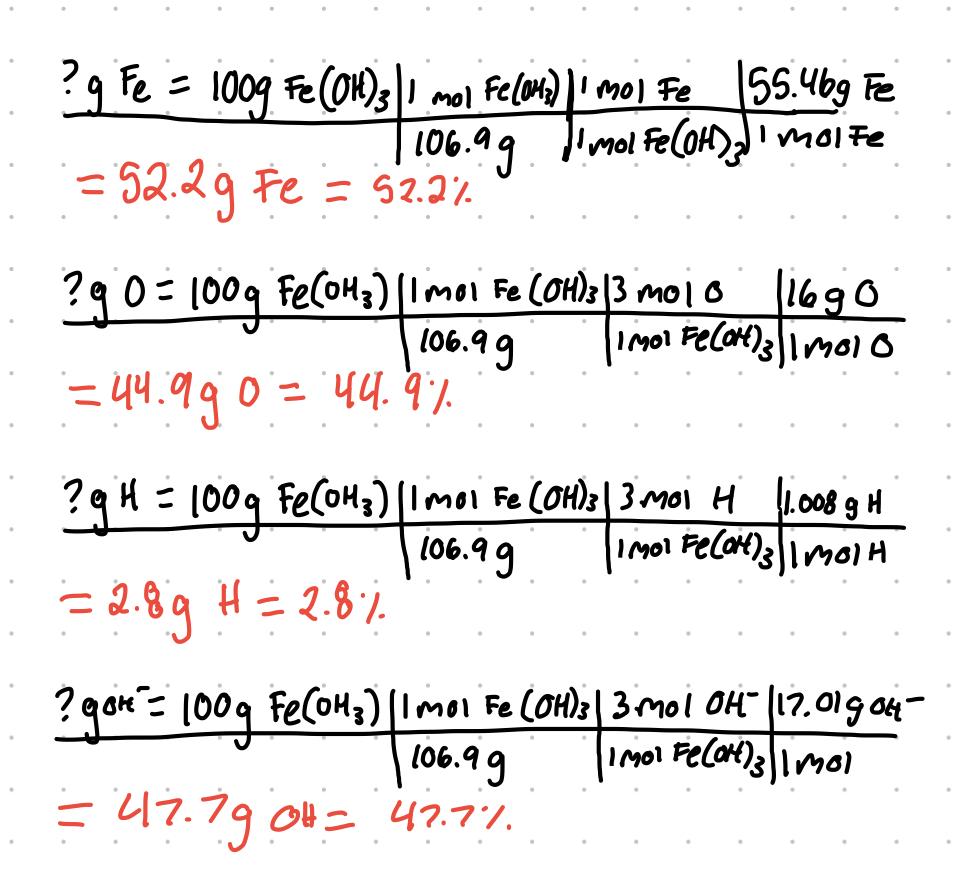 ? g Fe = 100g Fe(OH)3 | 1 mol Fe(OH3) | 1 mol Fe | 55.46g Fe
106.9 g | 1 mol Fe(OH)3 | 1 mol Fe
= 52.2g Fe = 52.2%
? g O = 100g Fe(OH3) | 1 mol Fe(OH)3 | 3 mol O | 16 g O
106.9 g | 1 mol Fe(OH)3 | 1 mol O
= 44.9g O = 44.9%
? g H = 100g Fe(OH3) | 1 mol Fe(OH)3 | 3 mol H | 1.008 g H
106.9 g | 1 mol Fe(OH)3 | 1 mol H
= 2.8g H = 2.8%
? g OH⁻ = 100g Fe(OH3) | 1 mol Fe(OH)3 | 3 mol OH⁻ | 17.01g OH⁻
106.9 g | 1 mol Fe(OH)3 | 1 mol
= 47.7g OH = 47.7%